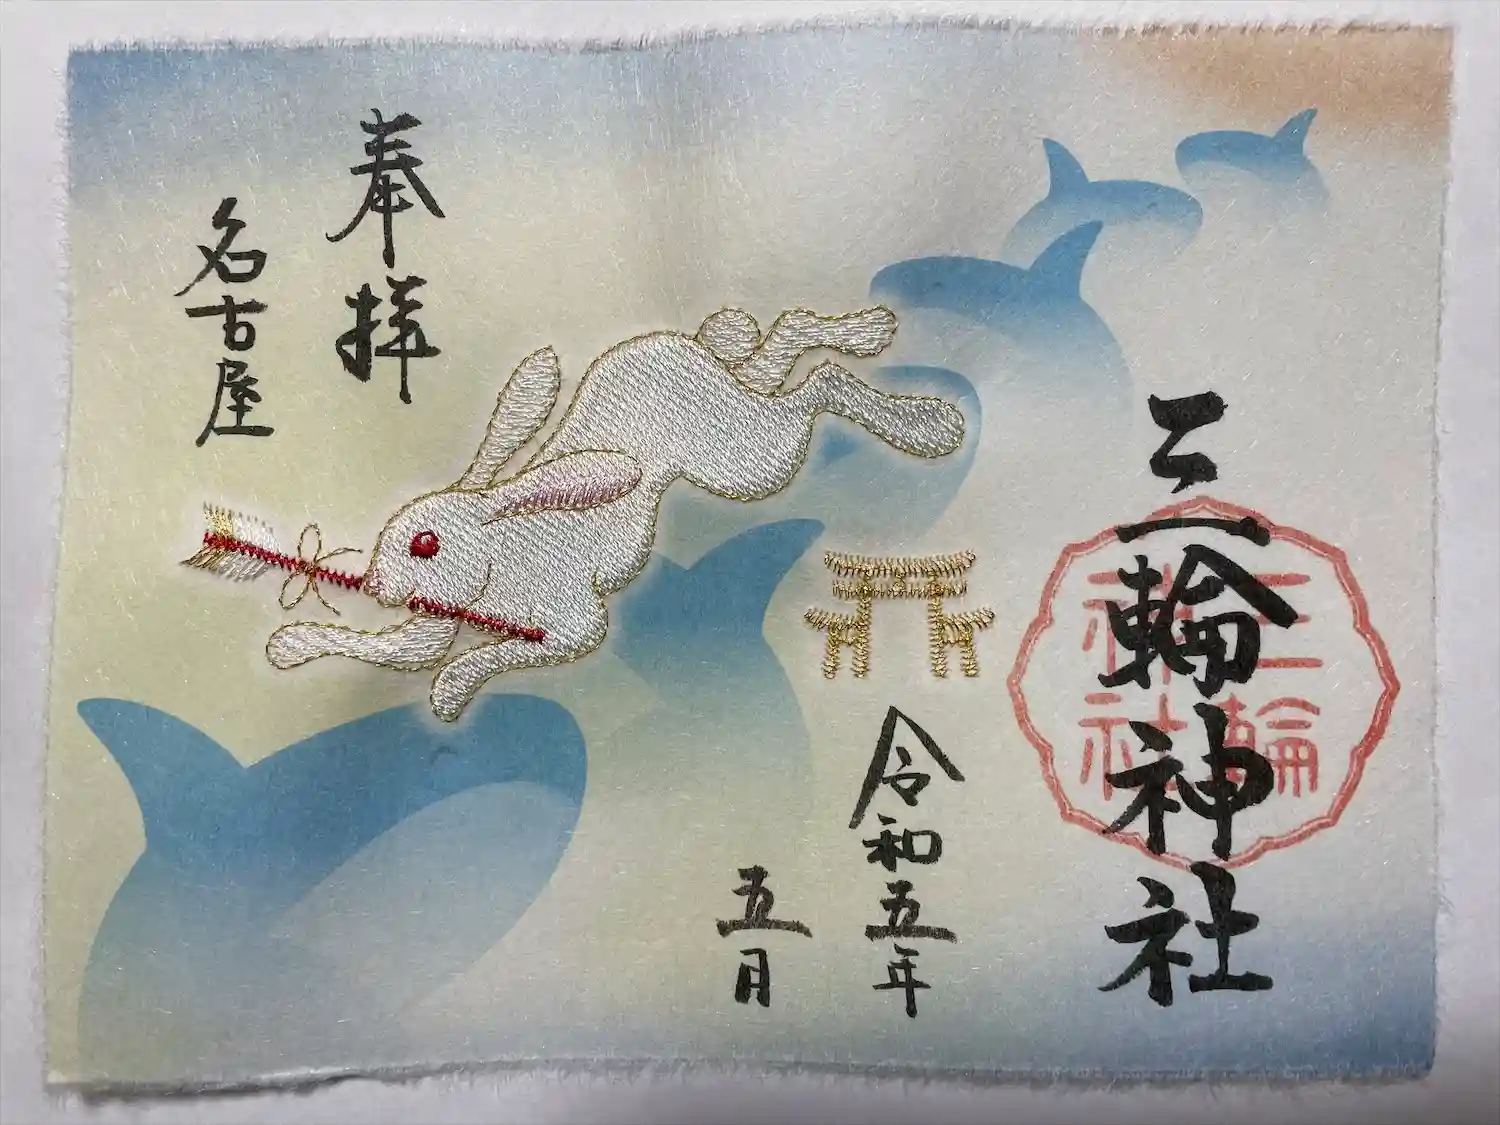 三輪神社
三輪
神社
令和五年
五月
奉拝
名古屋